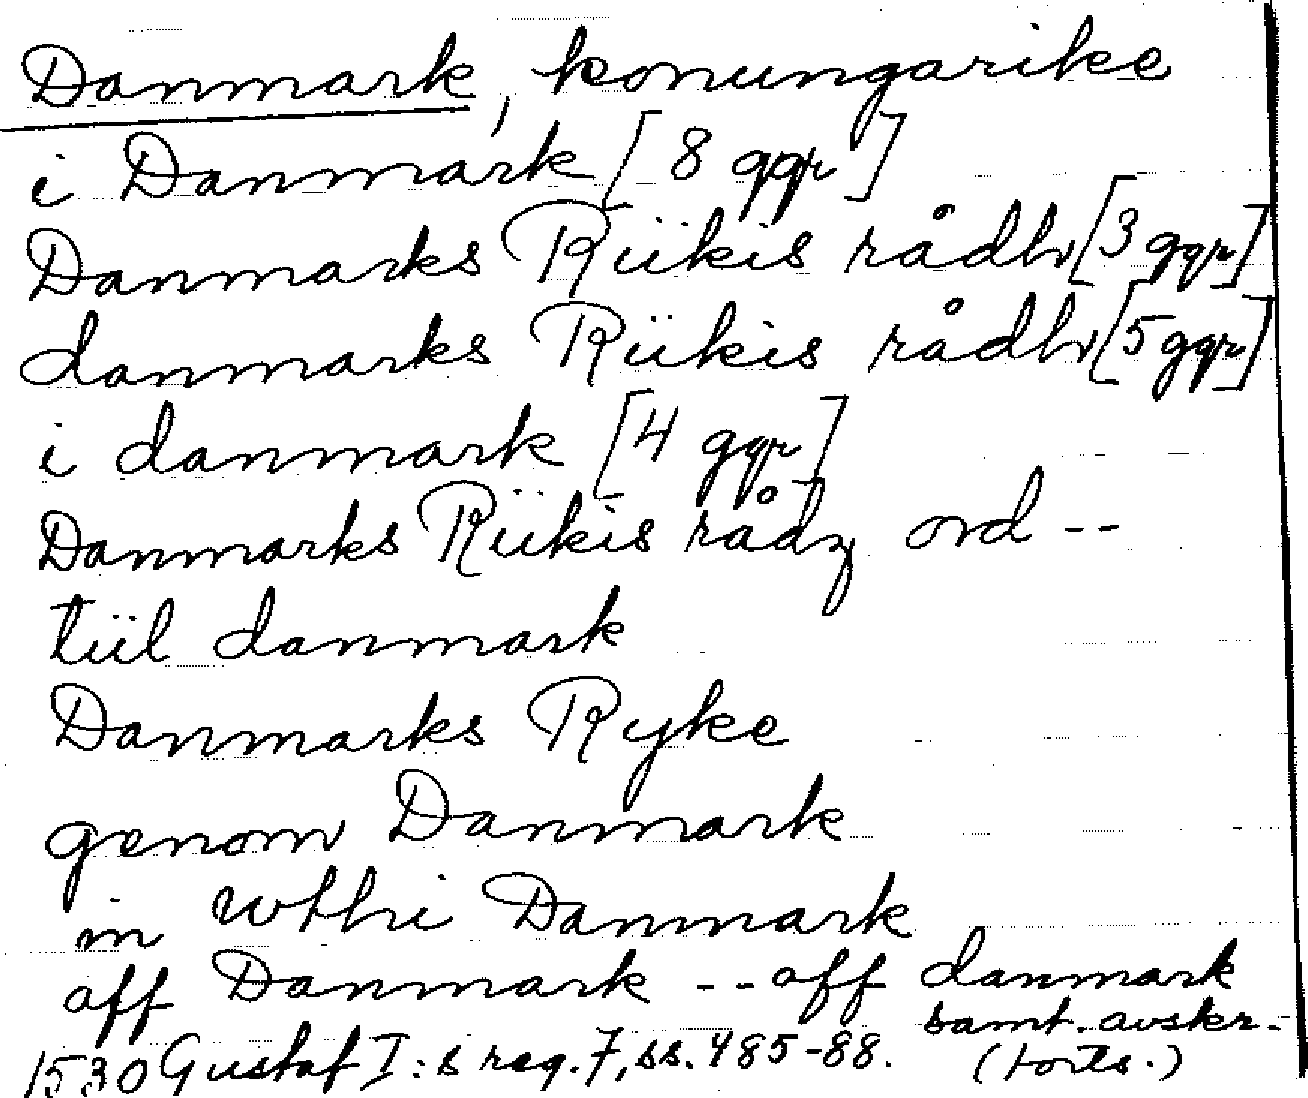 Danmark, konungarike
i Danmark [8 ggr]
Danmarks Rïïkis rådh [3 ggr]
danmarks Rïïkis rådh [5 ggr]
i danmark [4 ggr]
Danmarks Rïïkis rådz ord --
tiil danmark
Danmarks Ryke
genom Danmark
in wthi Danmark
aff Danmark -- aff danmark
samt. avskr.
1530 Gustaf I:s reg. 7, ss. 485-88. (forts.)